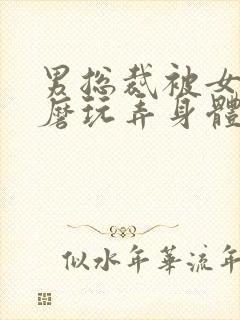 男总裁被女
磨玩弄身體
似水年華流年